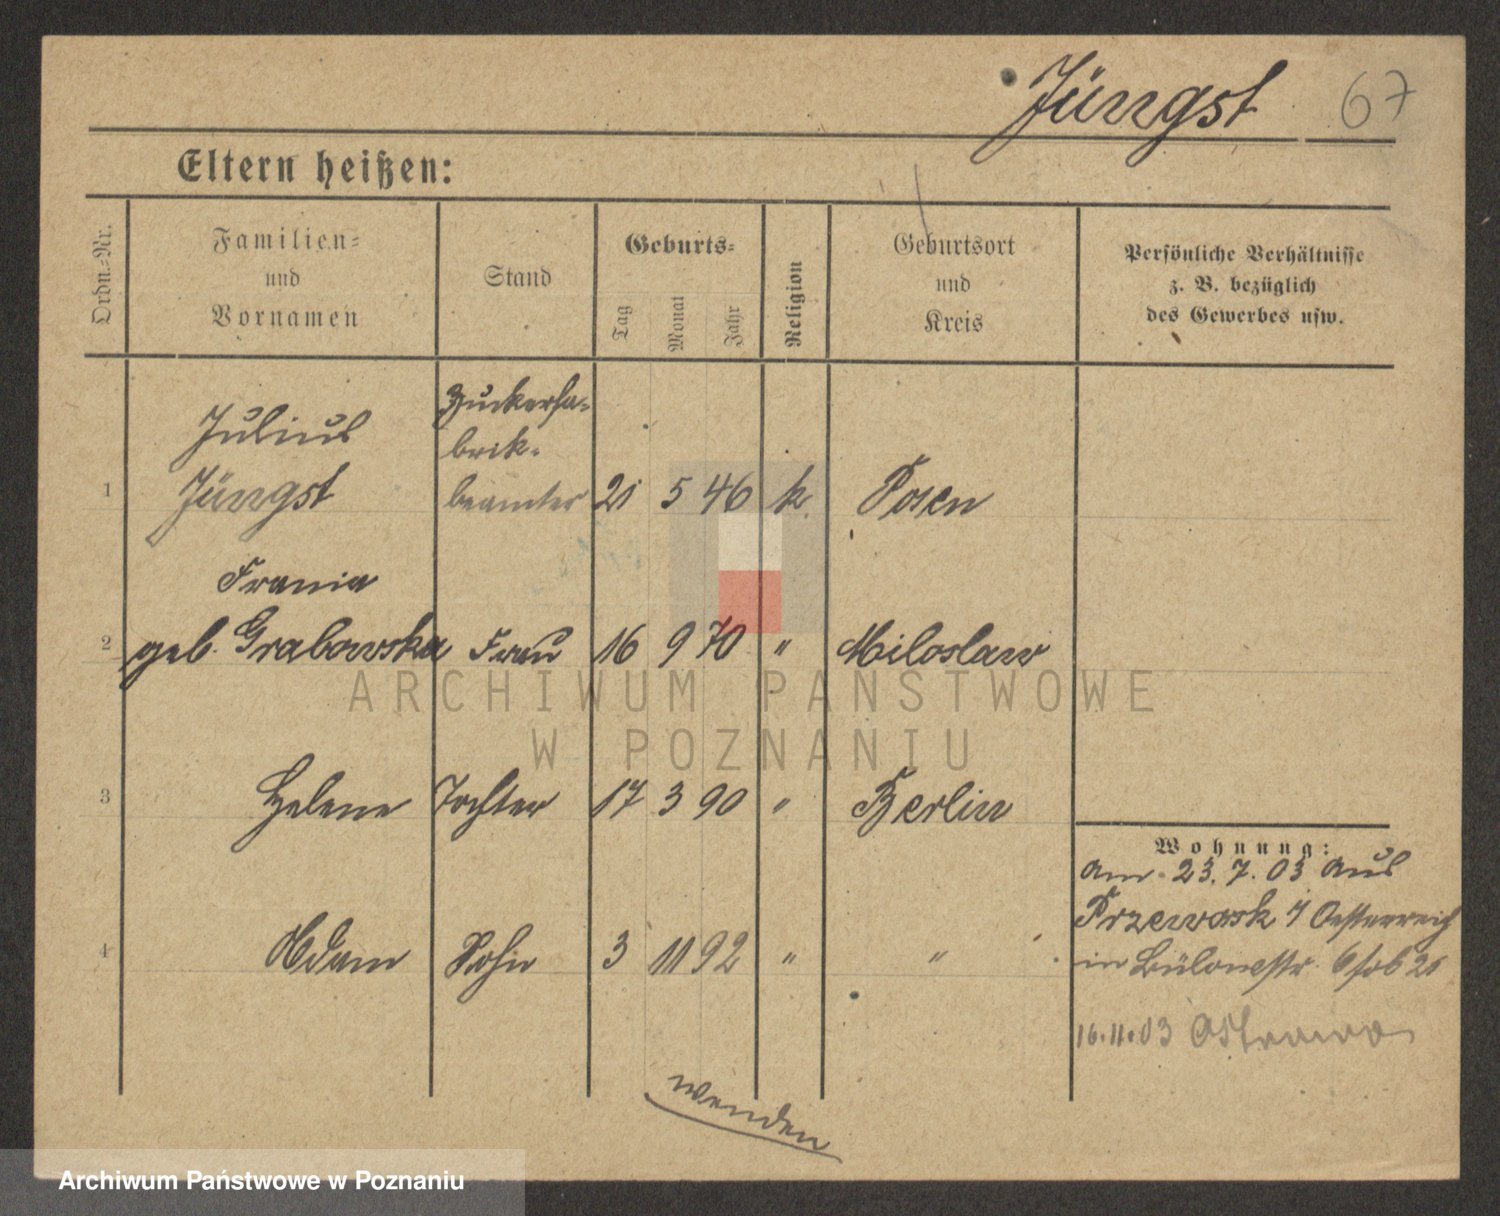 Jüngst 67
Eltern heißen:
Ordn.-Nr.
Familien-
und
Vornamen
Stand
Geburts-
Tag
Monat
Jahr
Religion
Geburtsort
und
Kreis
Persönliche Verhältnisse
z. B. bezüglich
des Gewerbes usw.
Julius Zuckerfa-
brik-
1 Jüngst beamter 21 5 46 k. Posen
Frania
2 geb. Grabowska Frau 16 9 70 " Miloslaw
3 Helene Tochter 17 3 90 " Berlin
Wohnung:
am 23. 7. 03 aus
Przeworsk i/ Oesterreich
4 Adam Sohn 3 11 92 " "
in Bülowstr. 6
16.11.03 Ostrowo
wenden
ARCHIWUM PAŃSTWOWE
W POZNANIU
Archiwum Państwowe w Poznaniu